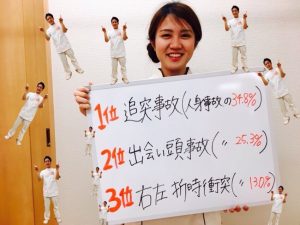 1位 追突事故(人身事故の34.8%)
2位 出会い頭事故(〃 25.3%)
3位 右左折時衝突(〃 13.0%)